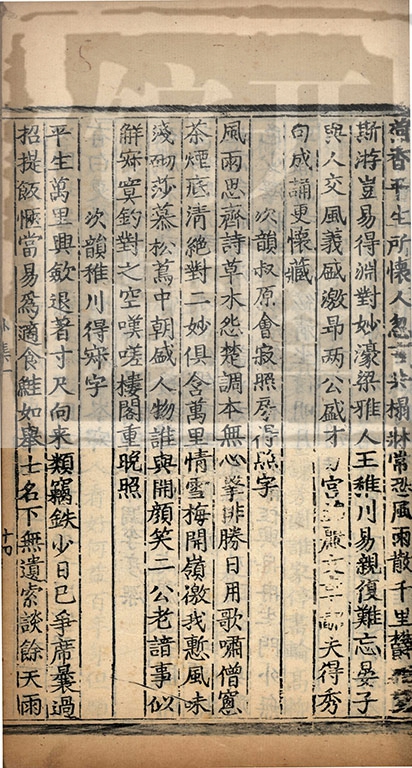 尚香平生所懷人忽言共榻牀常恐風雨散千里鬱
斯游豈易得淵對妙濠梁雅人王稚川易親復難忘晏子
與人交風義盛激昂两公盛才宮嚴文章鄙夫得秀
句成誦更懷藏
次韻叔原會寂照房得照字
風雨思齊詩草木怨楚調本無心擊排勝日用歌嘯僧窻
茶煙底清絶對二妙俱含萬里情雪梅開嶺徼我慙風味
淺砌莎慕松蔦中朝盛人物誰與開顔笑二公老諳事似
解寂寞釣對之空嘆嗟樓閣重晚照
次韻稚川得寂字
平生萬里興斂退著寸尺向来類竊鈇少日已争席曩過
招提飯愜當易為適食鮭如舉士名下無遺索談餘天雨
外集一
十